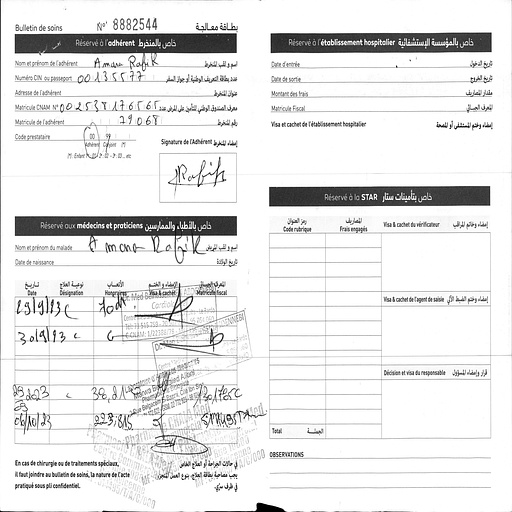 Bulletin de soins N° 8882544 بطاقة معالجة
Réservé à l'adhérent خاص بالمنخرط
Nom et prénom de l'adhérent Amara Rafik اسم و لقب المنخرط
Numéro CIN ou passeport 00135577 عدد بطاقة التعريف الوطنية أو جواز السفر
Adresse de l'adhérent عنوان المنخرط
Matricule CNAM N° معرف الصندوق الوطني للتأمين على المرض عدد
Matricule de l'adhérent 29068 رقم المنخرط
Code prestataire 00 99
Adhérent Conjoint
Signature de l'Adhérent إمضاء المنخرط
Rafik
Réservé aux médecins et praticiens خاص بالأطباء والممارسين
Nom et prénom du malade Amara Rafik اسم و لقب المريض
Date de naissance تاريخ الولادة
تاريخ نوعية العلاج الأتعاب الإمضاء و الختم المعرف الجبائي
Date Désignation Honoraires Visa & cachet Matricule fiscal
29/9/23 c
30/9/23 c
06/10/23 223,815
En cas de chirurgie ou de traitements spéciaux,
il faut joindre au bulletin de soins, la nature de l'acte
pratiqué sous pli confidentiel.
في حالات الجراحة أو العلاج الخاص
يجب مصاحبة بطاقة العلاج، بنوع العمل المنجز
في ظرف سري.
Réservé à l'établissement hospitalier خاص بالمؤسسة الإستشفائية
Date d'entrée تاريخ الدخول
Date de sortie تاريخ الخروج
Montant des frais مقدار المصاريف
Matricule Fiscal المعرف الجبائي
Visa et cachet de l'établissement hospitalier إمضاء وختم المستشفى أو المصحة
Réservé à la STAR خاص بتأمينات ستار
رمز العنوان المصاريف
Code rubrique Frais engagés
Visa & cachet du vérificateur إمضاء وخاتم المراقب
Visa & cachet de l'agent de saisie إمضاء وختم الضبط الآلي
Décision et visa du responsable قرار وإمضاء المسؤول
Total الجملة
OBSERVATIONS